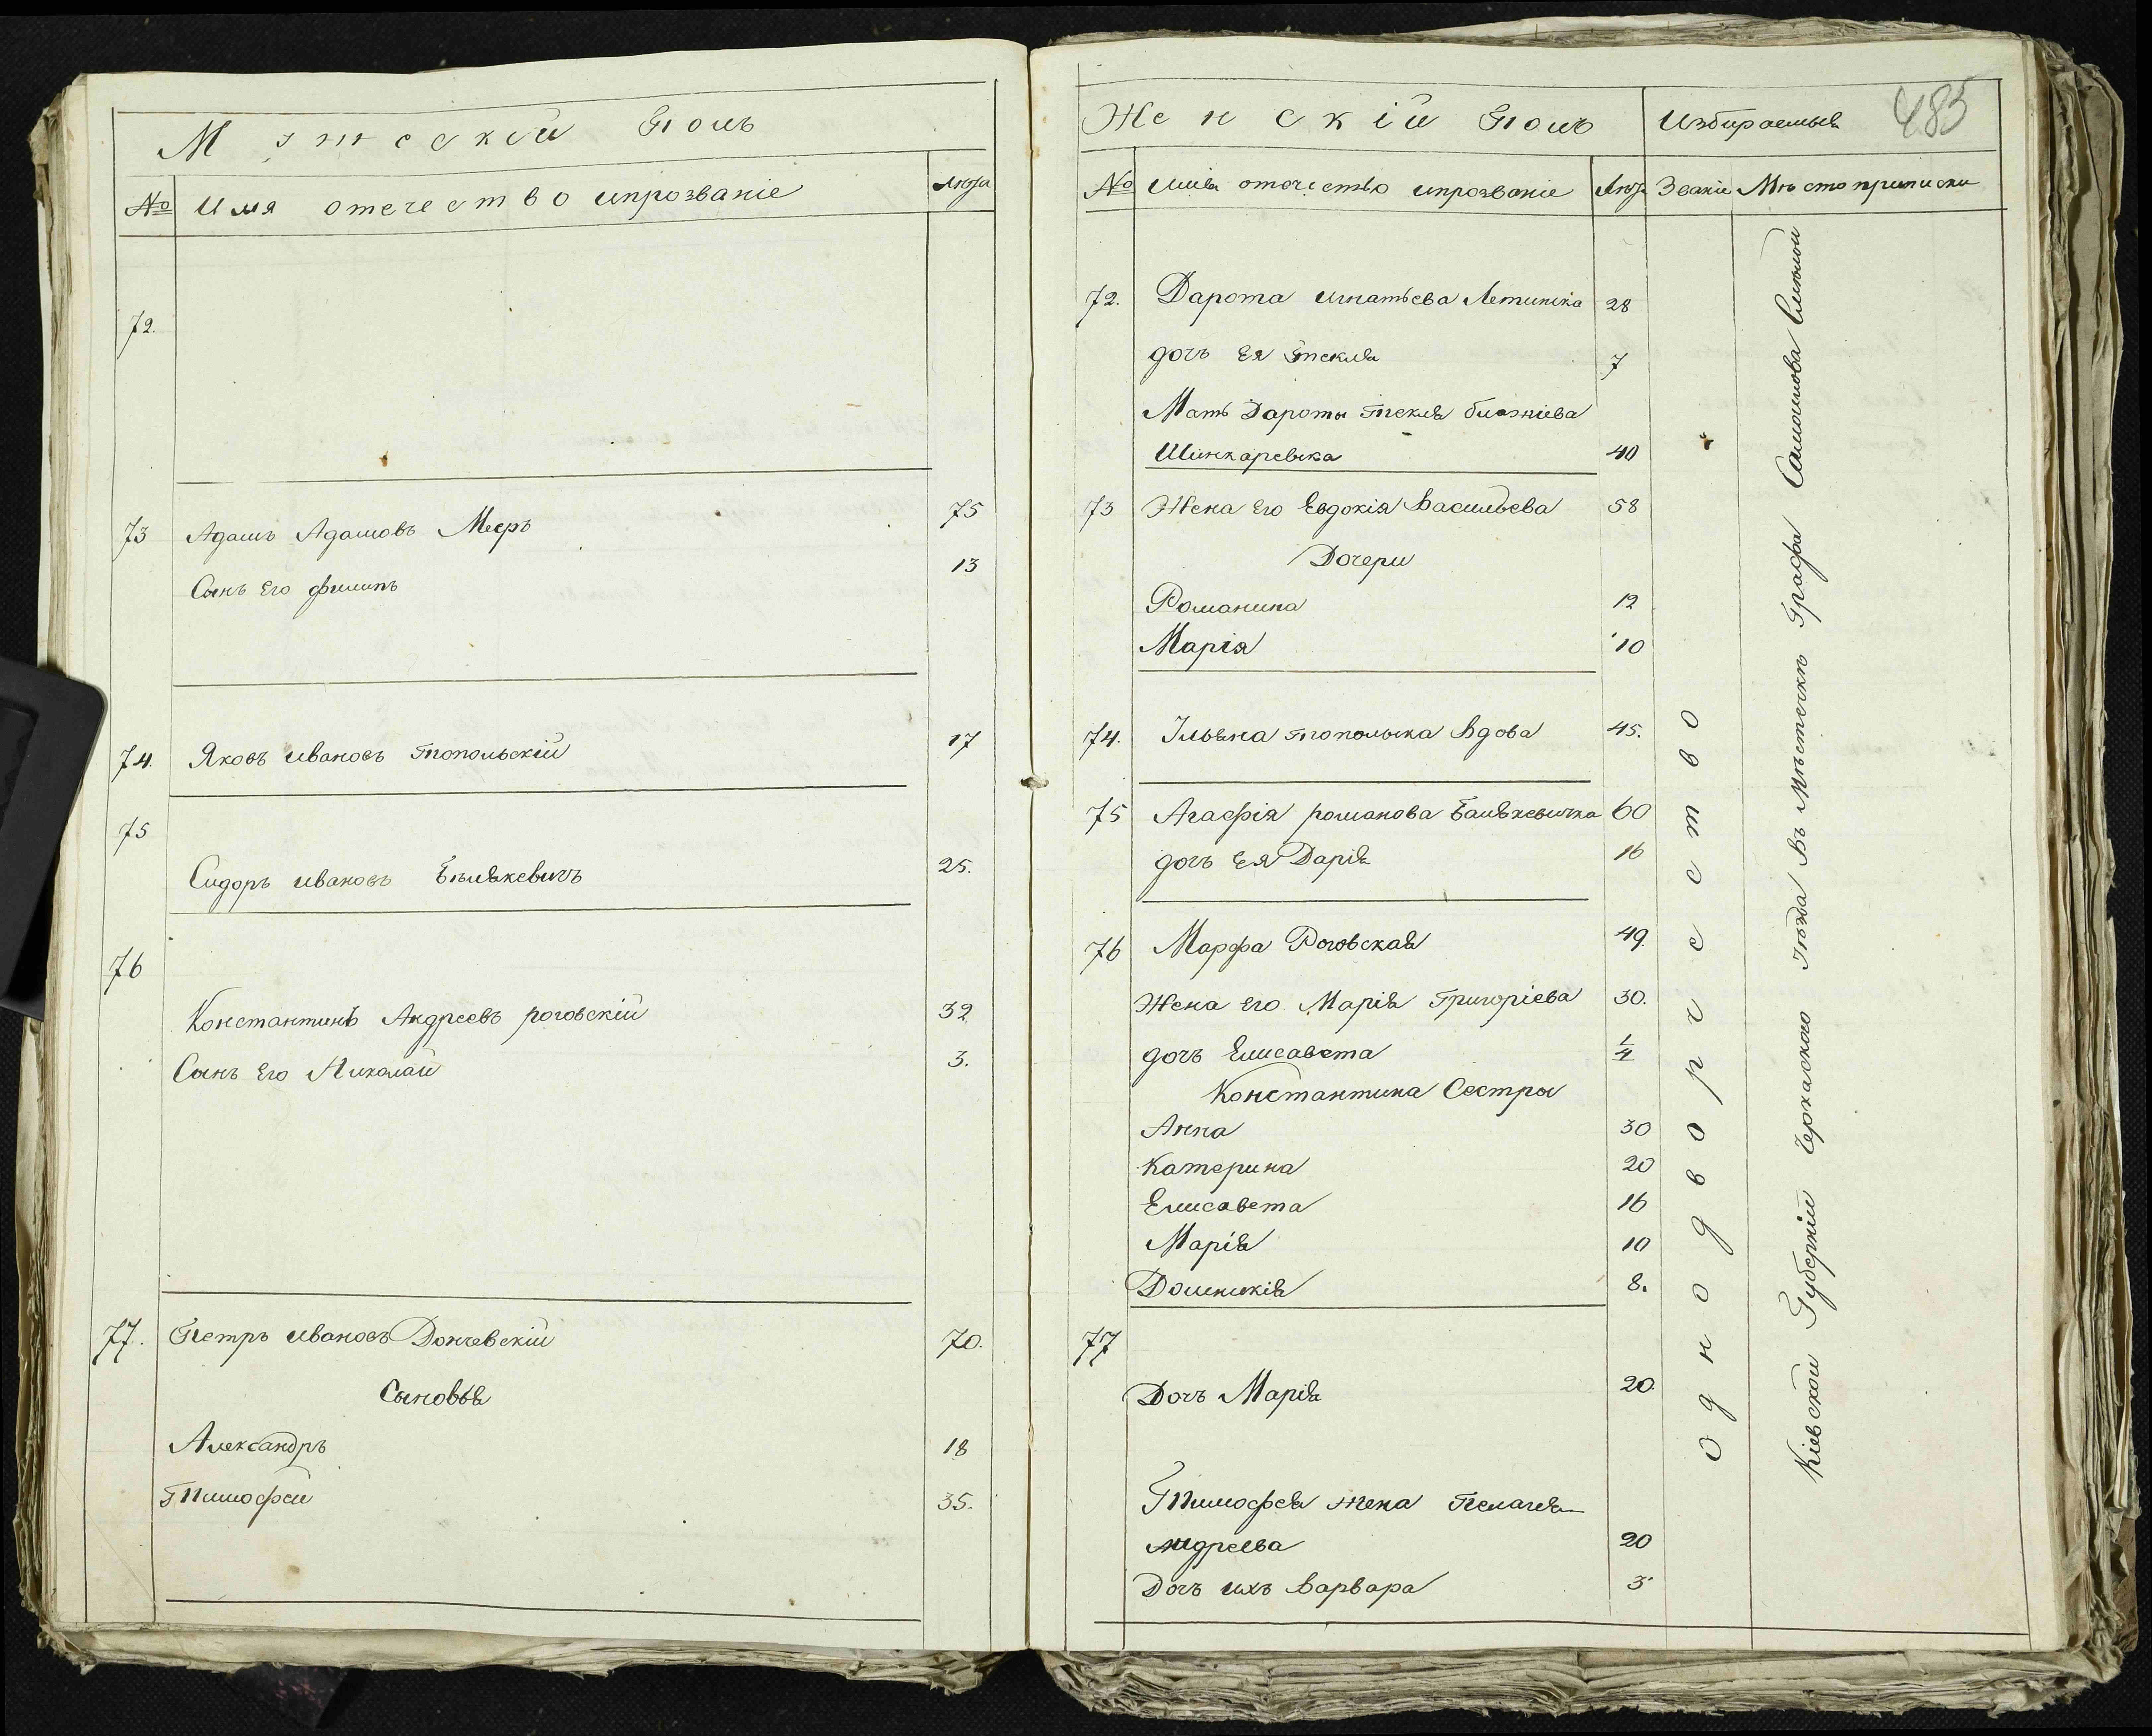 Мужеский Полъ
№ Имя отечество ипрозваніе Лѣта
72.
73 Адамъ Адамовъ Мееръ 75
Сынъ Его филипъ 13
74. Яковъ Ивановъ Топольскій 17
75
Сидоръ Ивановъ 25.
76
Константинъ Андреевъ роговскій 32
Сынъ Его Николай 3.
77. Петръ Ивановъ Дончевскій 70.
Сыновья
Александръ 18
Тимофей 35.
Женскій Полъ Избираемыя 485
№ Имя отечество ипрозваніе Лѣта Званіе Мѣсто приписки
72. Дарота Игнатьева 28
дочь Ея Текля 7
Мать Дароты Текля
Шинкаревска 40
73 Жена Его Евдокія Васильева 58
Дочери
Романина 12
Марія 10
74. Ульяна Топольска Вдова 45.
75 Агафія романова 60
дочь Ея Дарія 16
76 Марфа Роговская 49.
Жена Его Марія Григоріева 30.
дочь Елисавета 1/4
Константина Сестры
Анна 30
Катерина 20
Елисавета 16
Марія 10
Доминикія 8.
77
Дочь Марія 20.
Тимофея жена Пелагея
Андреева 20
Дочь ихъ Варвара 3
однодворчество
Кіевской Губерніи Черкаского Уѣзда Въ Мѣстечкѣ Графа Самойлова Смелой